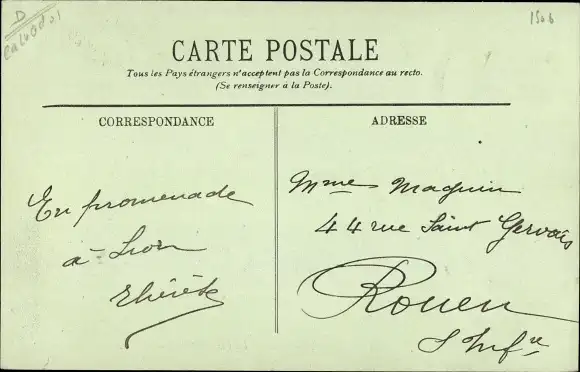 D
Calvados
1506
CARTE POSTALE
Tous les Pays étrangers n'acceptent pas la Correspondance au recto.
(Se renseigner à la Poste).
CORRESPONDANCE
ADRESSE
En promenade
à Lion
Mmes Maguin
44 rue Saint Gervais
Rouen
S Infre